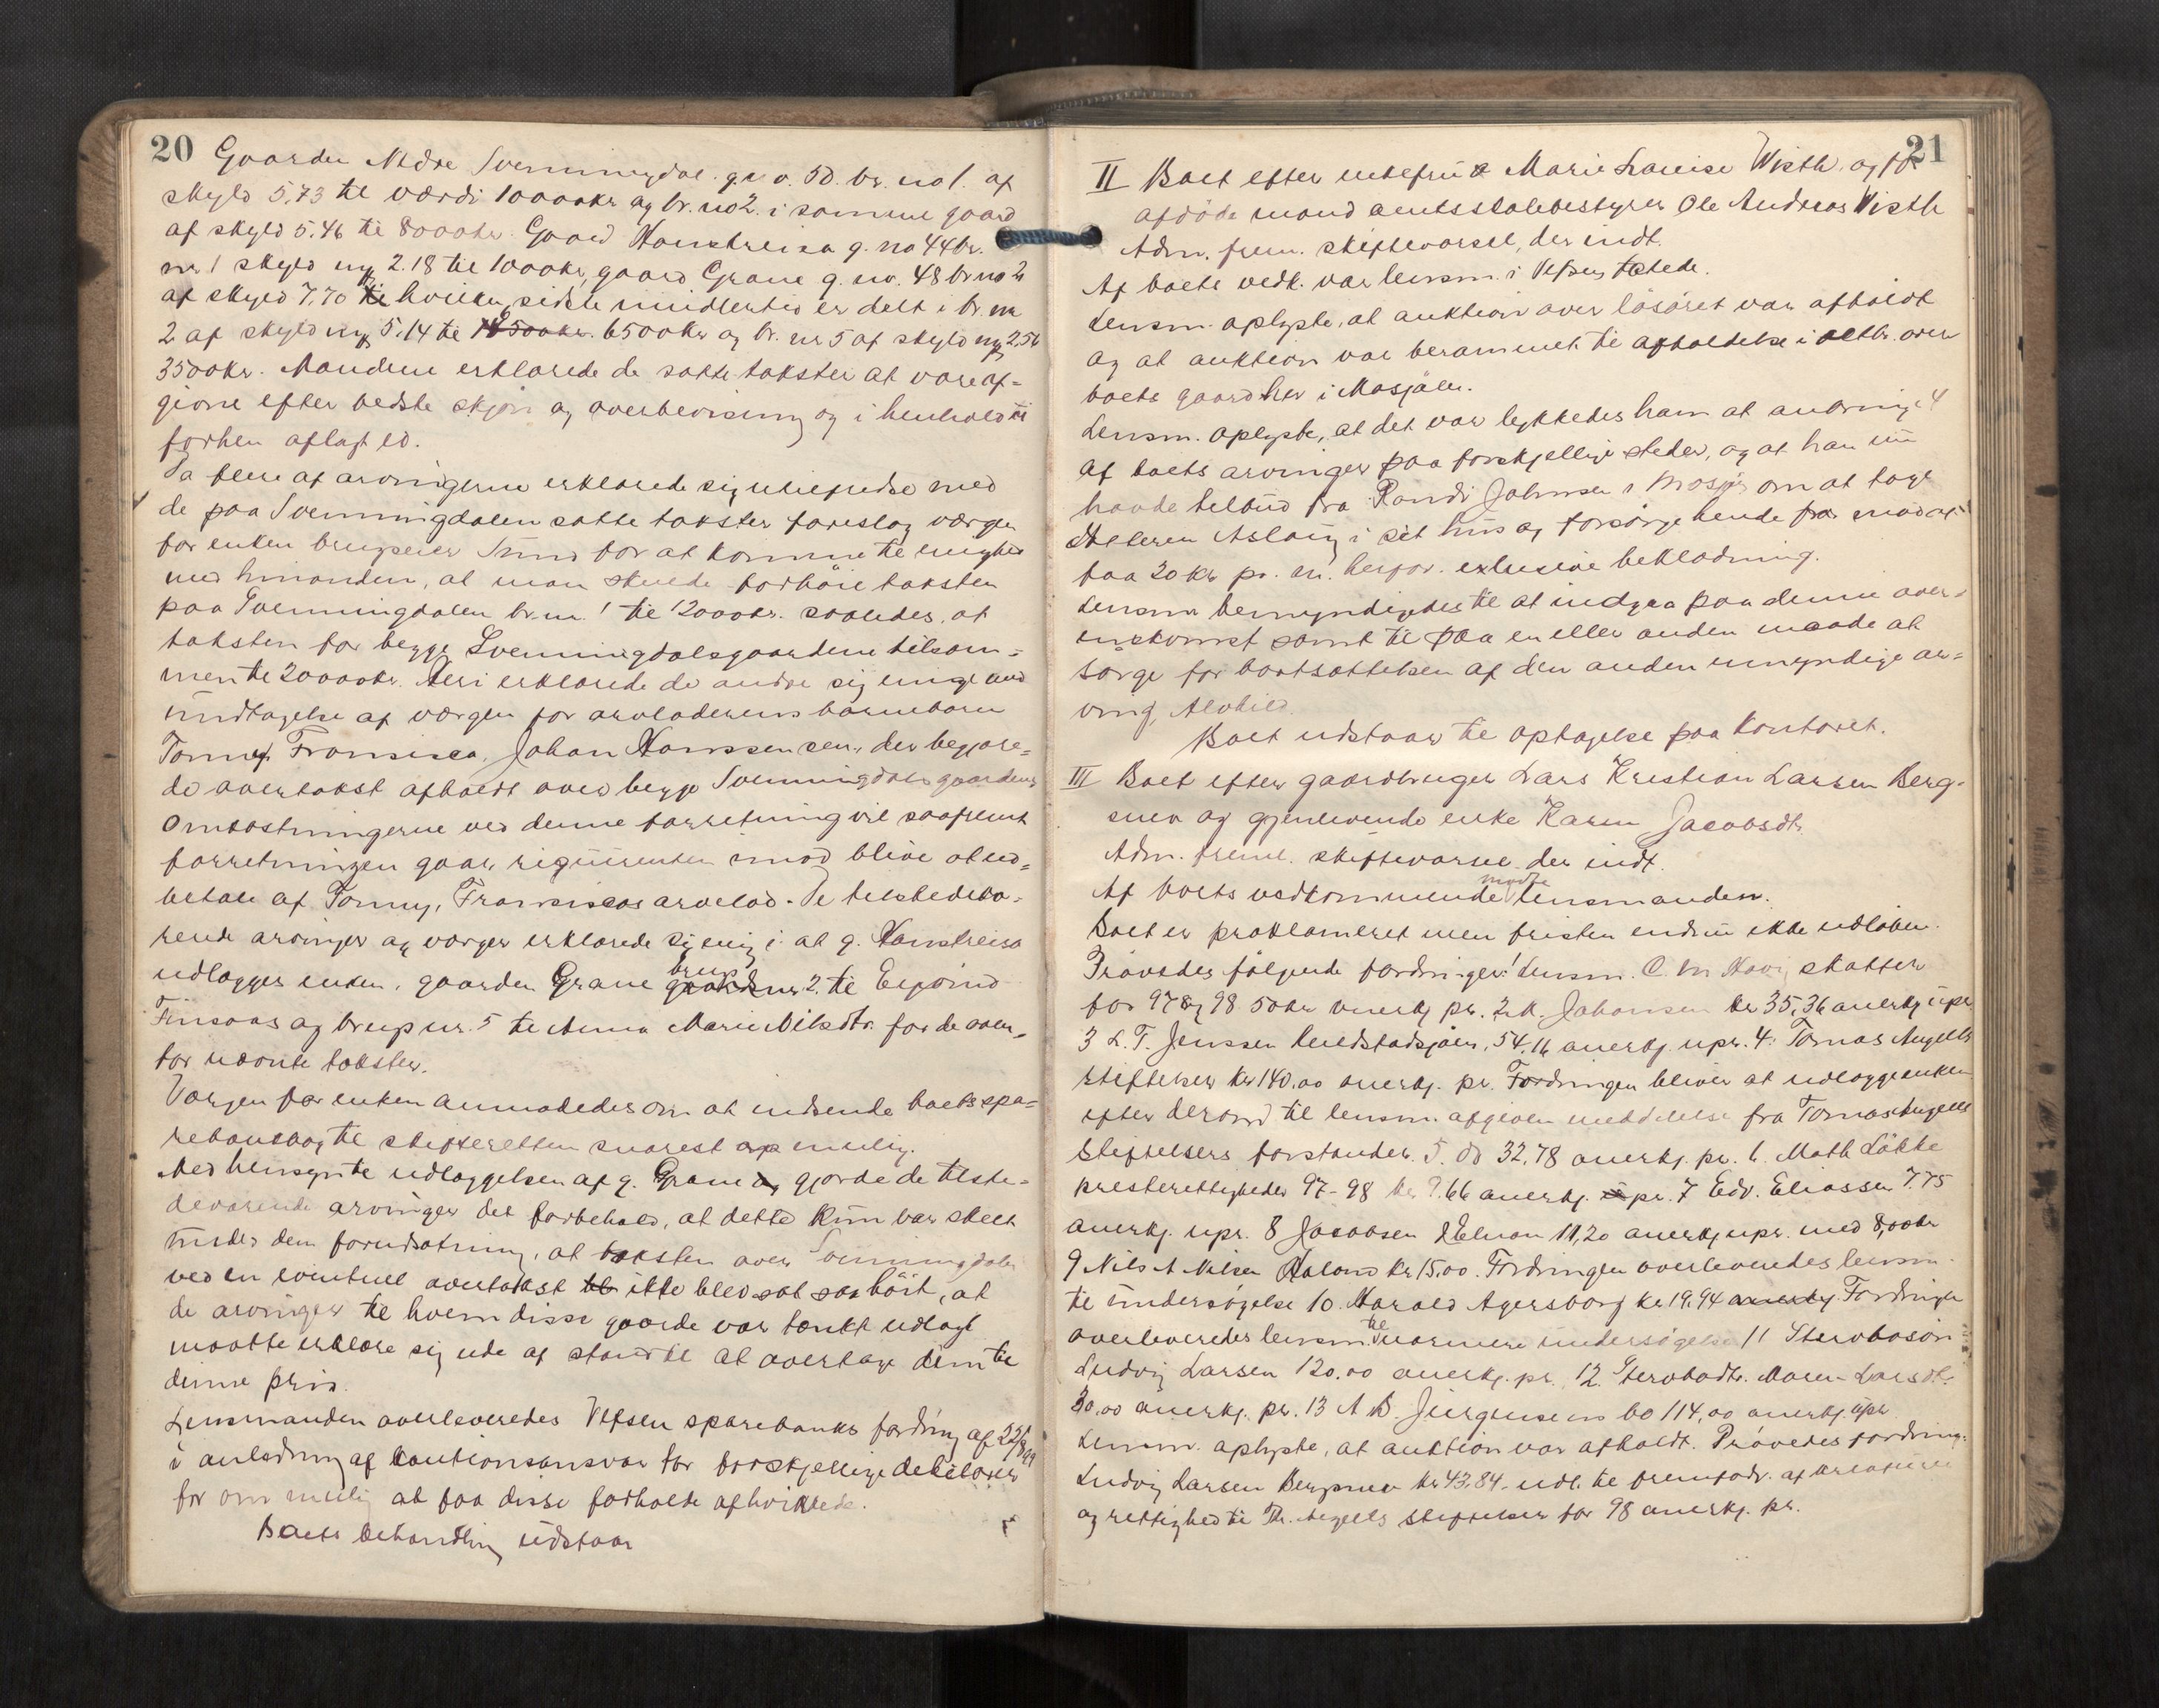 20
Gaarden Nedre Svenningdal g.no. 50. br. no 1. af
skyld 5.73 til værdi 10000kr og br. no 2. i samme gaard
af skyld 5.46 til 8000kr. Gaard Hanskreisa g. no 44 br.
nr 1 skyld ny 2.18 til 1000kr, gaard Grane g. no. 48 br. no 2
af skyld 7.70 hvilken sidste imidlertid er delt i br. nr
2 af skyld ny 5.14 til 6500kr og br. nr 5 af skyld ny 2,56
3500kr. Mændene erklærede de satte takster at være af=
givne efter bedste skjøn og overbevisning og i henhold til
forhen aflagt ed.
Da flere af arvingerne erklærede sig utilfredse med
de paa Svenningdalen satte takster foreslog værgen
for enken brugseier Sund for at komme til enighed
med hinanden, at man skulde forhøie taksten
paa Svenningdalen br. nr. 1 til 12000kr. saaledes, at
taksten for begge Svenningdalsgaardene tilsam=
men til 20000kr. Heri erklærede de andre sig enige med
undtagelse af værgen for arveladerens barnebarn
Tomy Fransisca, Johan Hanssen sen., der begjære=
de overtakst afholdt over begge Svenningdalsgaardene
Omkostningerne ved denne forretning vil saafremt
forretningen gaar reqvirenten imod blive at ud=
betale af Tomy, Fransiscas arvelod. De tilstedevæ=
rende arvinger og værger erklærede sig enig i at g. Hanskreisa
udlægges enken, gaarden Grane brug nr. 2. til Eyvind
Finsaas og brug nr. 5 til Anna Marie Nilsdtr. for de oven=
for nævnte takster.
Værgen for enken anmodedes om at indsende boets spa=
rebanksbog til skifteretten snarest mulig.
Med hensyn til udlæggelsen af g. Grane gjorde de tilste=
deværende arvinger det forbehold, at dette kun var skeet
under den forudsætning, at taksten over Svenningdalen
ved en eventuel overtakst ikke blev sat saa høit, at
de arvinger til hvem disse gaarde var tænkt udlagt
maatte erklære sig ude af stand til at overtage dem til
denne pris.
Lensmanden overleveredes Vefsen sparebanks fordring af 22/8 99
i anledning af kautionsansvar for forskjellige debitorer
for om mulig at faa disse forholde afviklede.
Boets behandling udstaar
21
II Boet efter enkefru Marie Louise Wisth og før
afdøde mand amtsskolebestyrer Ole Andreas Wisth
Adm. frem. skiftevarsel, der indt.
Af boets vedk. var lensm. i Vefsen tilstede.
Lensm. oplyste, at auktion over løsøret var afholdt
og at auktion var berammet til afholdelse i oktbr. over
boets gaard her i Mosjøen.
Lensm. oplyste, at det var lykkedes ham at anbringe 4
af boets arvinger paa forskjellige steder, og at han nu
havde tilbud fra Randi Johnsen i Mosjøen om at tage
datteren Aslaug i sit hus og forsørge hende mod at
faa 20kr pr. m. herfor. exlusive beklædning.
Lensm. bemyndigedes til at indgaa paa denne over=
enskomst samt til paa en eller anden maade at
sørge for bortsættelsen af den anden umyndige ar=
ving, Alvhild.
Boet udstaar til optagelse paa kontoret.
III Boet efter gaardbruger Lars Kristian Larsen Berg=
snev og gjenlevende enke Karen Jacobsdtr.
Adm. freml. skiftevarsel der indt.
Af boets vedkommende mødte lensmanden.
Boet er proklameret men fristen endnu ikke udløben.
Prøvedes følgende fordringer: 1 Lensm. C. M. Havig skatter
for 97 og 98 50kr anerkj pr. 2. K. Johansen kr 35,36 anerkj upr.
3 L. T. Jenssen Kulstadsjøen, 54.16 anerkj. upr. 4. Tomas Angells
Stiftelser kr 140.00 anerkj. pr. Fordringen bliver at udlægge enken
efter derom til lensm. afgiven meddelelse fra Tomas Angells
Stiftelsers forstander. 5. do 32.78 anerkj. pr. 6. Math Løkke
presterettigheder 97-98 kr 9.66 anerkj. pr. 7 Edv. Eliassen 7.75
anerkj. upr. 8 Jacobsen 11,20 anerkj upr. med 8,00kr
9 Nils A Nilsen Aaland kr 15.00. Fordringen overleveredes lensm.
til undersøgelse 10. Harald Agersborg kr. 19.94 Fordringen
overleveredes lensm. til nærmere undersøgelse 11 Stervbosøn
Ludvig Larsen 120.00 anerkj. pr. 12. Stervbodtr. Maren Larsdtr.
30.00 anerkj. pr. 13 A B. Jürgensens bo 114,00 anerkj. upr
Lensm. oplyste, at auktion var afholdt. Prøvedes fordring:
Ludvig Larsen Bergsnev kr 43.84. udl. til fremfodr. af kreaturer
og rettighed til Th. Angells Stiftelser for 98 anerkj. pr.